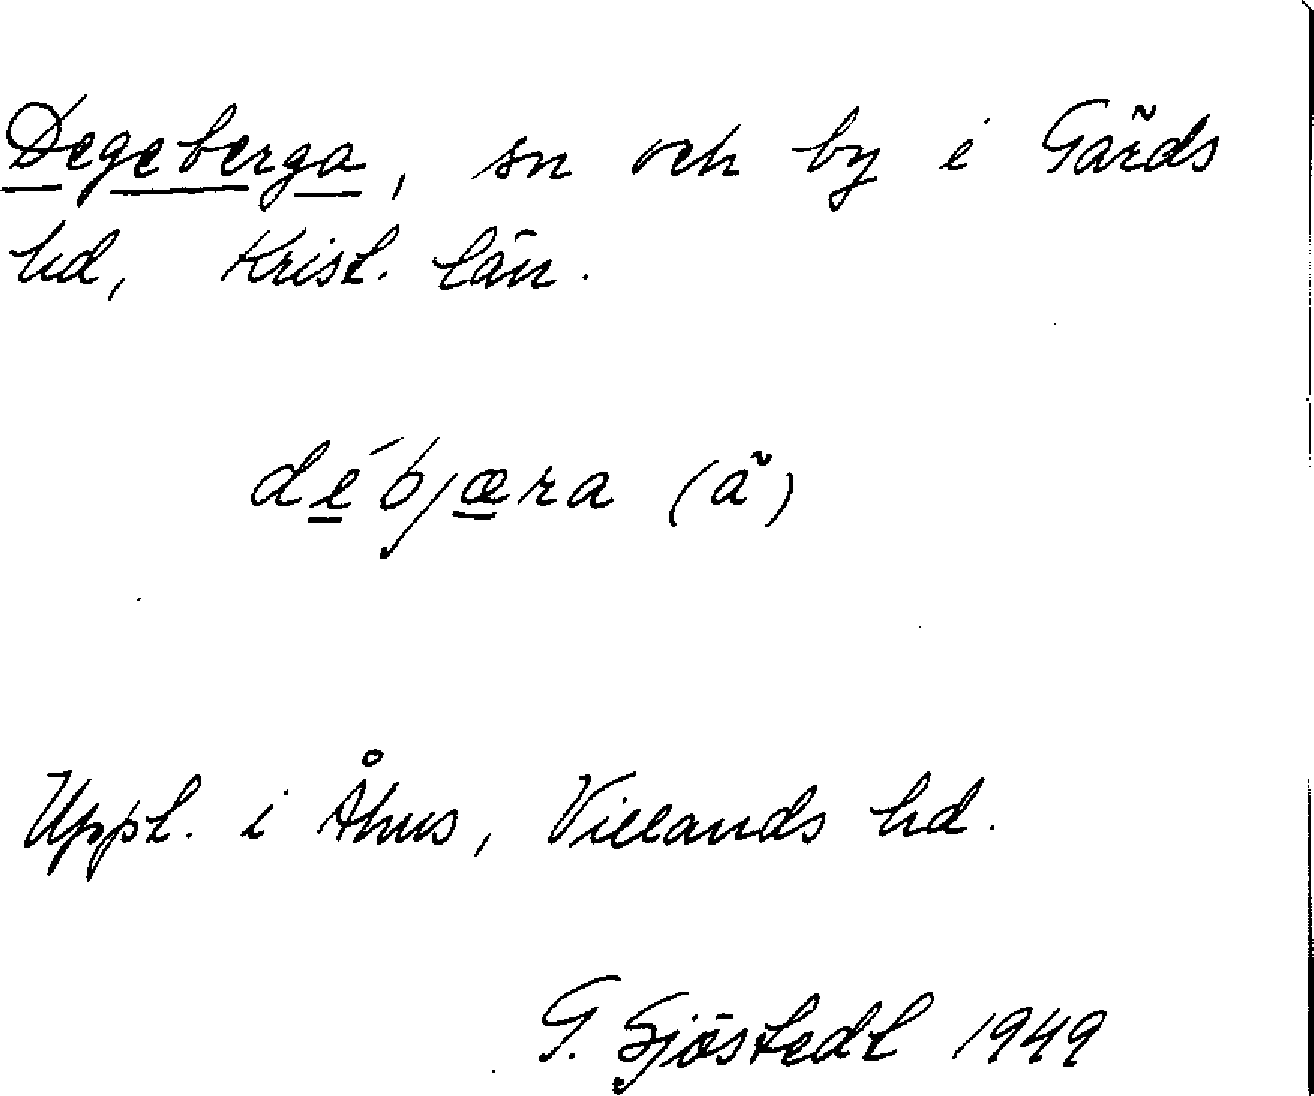 Degeberga, sn och by i Gärds
hd, Krist. län.
débjæra (ã)
Uppt. i Åhus, Villands hd.
G. Sjöstedt 1949